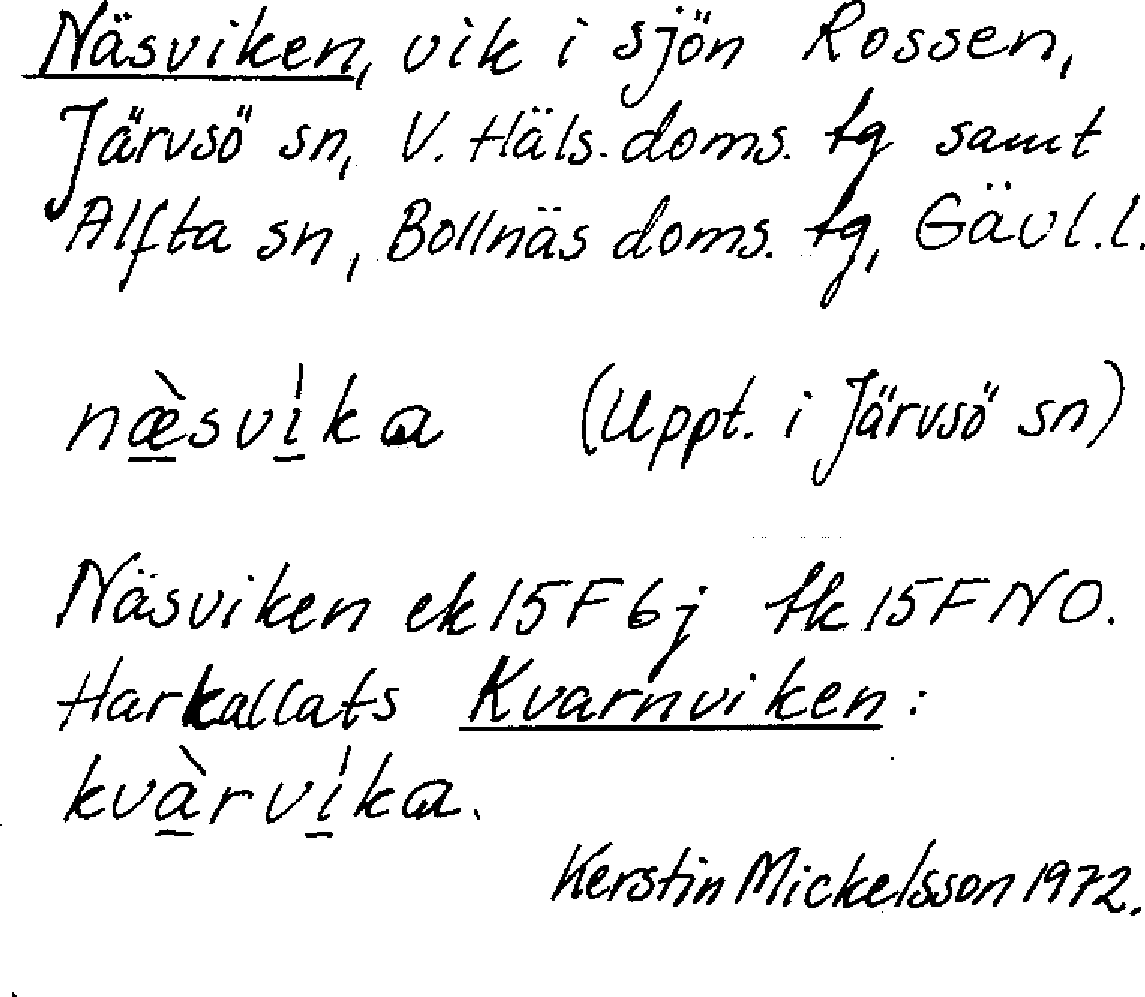 Näsviken, vik i sjön Rossen,
Järvsö sn, V. Häls. doms. tg samt
Alfta sn, Bollnäs doms. tg, Gävl. l.
næ̀svi̍ka (Uppt. i Järvsö sn)
Näsviken ek 15F6j tk 15F NO.
Har kallats Kvarnviken:
kvàrvi̍ka.
Kerstin Mickelsson 1972.